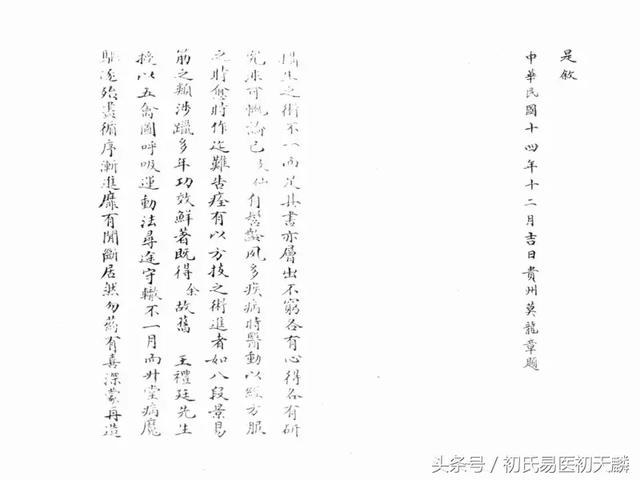 是敘
中華民國十四年十二月吉日貴州莫龍章題
攝生之術不一而足其書亦層出不窮各有心得各有研
究非可慨論已仙自髫齡夙多疾病時醫動以經方服
之時愈時作迄難告痊有以方技之術進者如八段景易
筋之類涉躐多年功效鮮著既得余故舊 王禮廷先生
授以五禽圖呼吸運動法尋途守轍不一月而升堂病魔
驅逐殆盡循序漸進靡有間斷居然勿藥有喜深蒙再造
头条号 / 初氏易医初天麟